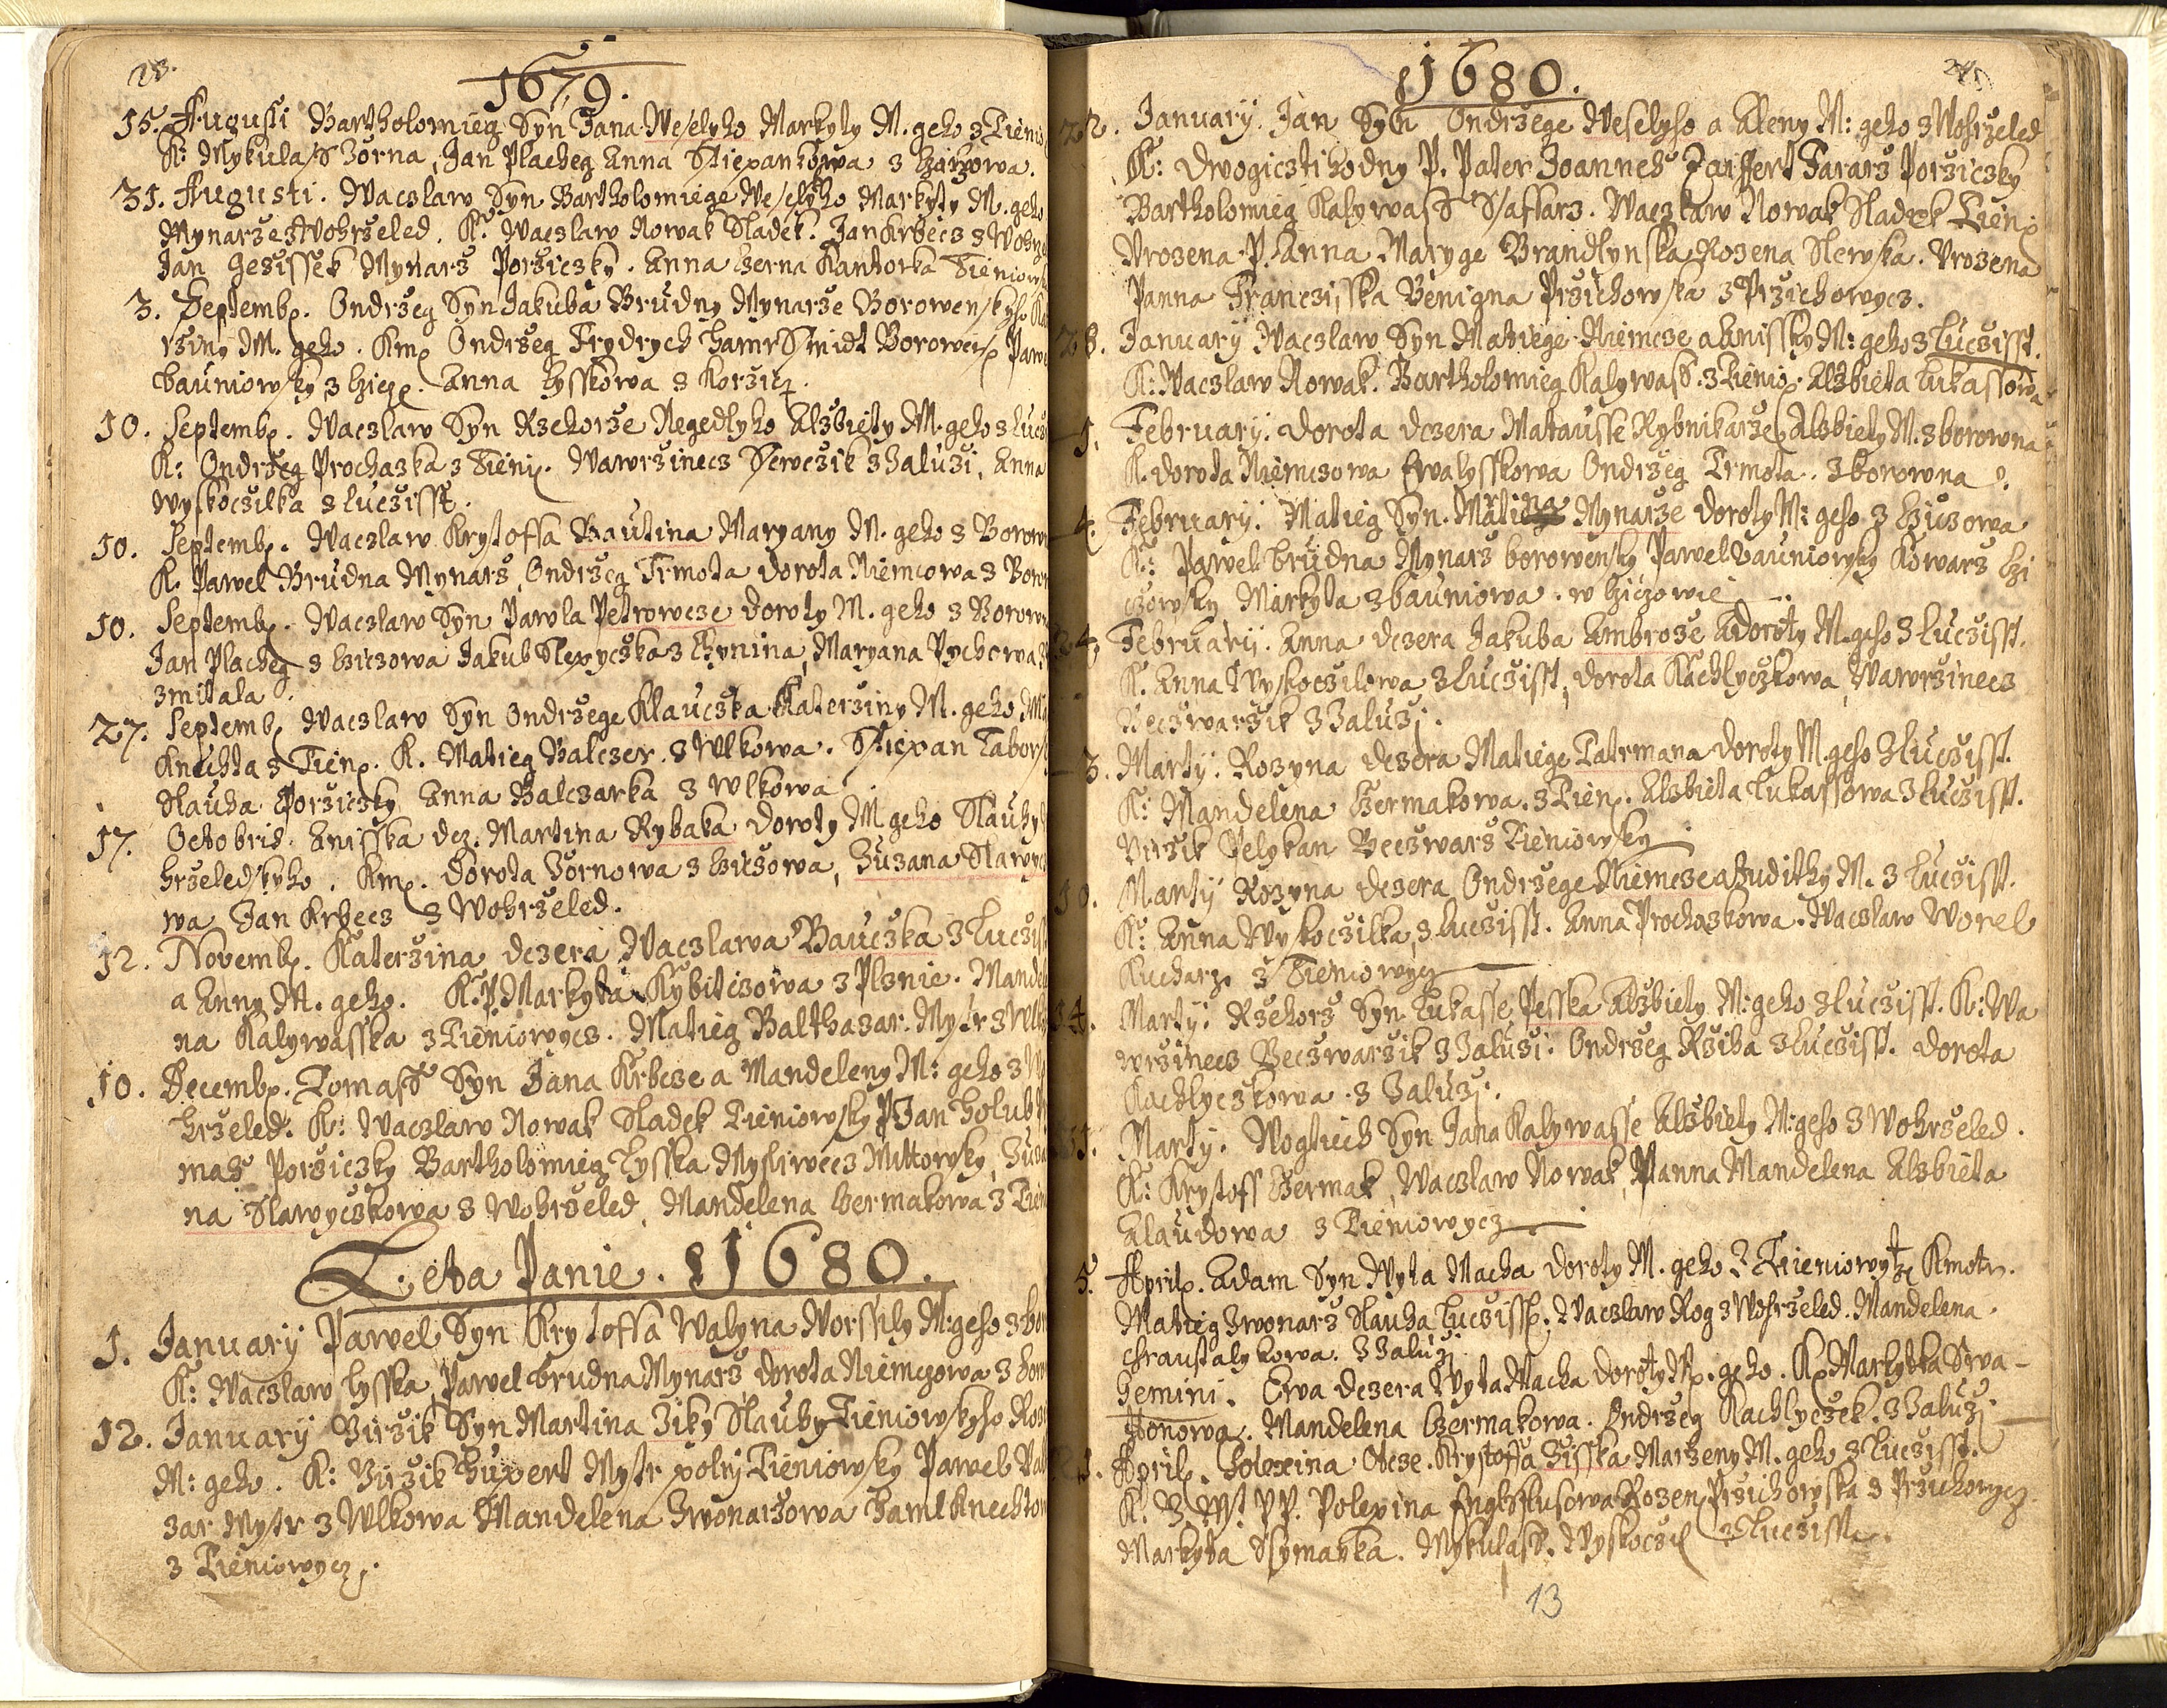 23.
1679.
15. Augusti Bartholomieg Syn Jana Weselyho Markyty M. geho z Tienio
K: Mykulass Zorna, Jan Placheg Anna Sstiepankowa z
31. Augusti. Waczlaw Syn Bartholomiege Weselyho Markyty M. geho
Mynarze z Wohrzeled. K: Waczlaw Nowak Sladek. Jan Krbecz z Wohrze
Jan Gezissek Mynarz Porziczsky. Anna Czerna Kantorka Tieniowsk
3. Septemb. Ondrzeg Syn Jakuba Brudny Mynarze Borowenskyho Ka
rziny M. geho. Km Ondrzeg Frydrych Hamrssmidt Borowen Pawe
Anna Lysskowa z
10. Septemb. Waczlaw Syn Rzehorze Negedlyho Alzbiety M. geho z Lucz
K: Ondrzeg Prochazka z Tieni. Wawrzinecz Ssewczik z Zaluzi, Anna
Wyskoczilka z Luczisst.
10. Septemb. Waczlaw Krystoffa Bautina Maryany M. geho z Borown
K. Pawel Brudna Mynarz, Ondrzeg Trmota Dorota Niemcowa z Borow
10. Septemb. Waczlaw Syn Pawla Petrowcze Doroty M. geho z Borown
Jan Placheg z Cziczowa Jakub z Chynina, Maryana Pychowa
27. Septemb Waczlaw Syn Ondrzege Klauczka Katerziny M. geho
Knechta z Tien. K. Matieg Balczer. z Wlkowa. Sstiepan Tabor
Slauha Porziczsky Anna Balczarka z Wlkowa
17. Octobris. Anisska dcz. Martina Rybaka Doroty M geho Slauhy
hrzeledskyho. Km. Dorota Zornowa z Cziczowa, Zuzana Slawycz
wa Jan Krbecz z Wohrzeled.
12. Novemb. Katerzina dczera Waczlawa Bauczka z Luczis
a Anny M. geho. K: P. Markyta Kybitczowa z Plznie. Mande
na Kalywasska z Tieniowycz. Matieg Balthasar. Mystr z Wlk
10. Decemb. Tomass Syn Jana Krbcze a Mandeleny M: geho z W
hrzeled. K: Waczlaw Nowak Sladek Tieniowsky P Jan Holub
mas Porziczsky Bartholomieg Lysska Myslivecz Mittowsky, Zuza
na Slawyczkowa z Wohrzeled, Mandelena Czermakowa z Tien
Leta Panie. 1680.
1. January Pawel Syn Krystoffa Walyna Worssily M: geho z Bor
K: Waczlaw Lysska, Pawel Brudna Mynarz Dorota Niemczowa z Borow
12. January Jirzik Syn Martina Ziky Slauhy Tieniowskyho Roz
M: geho. K: Jirzik Hupert Mystr polny Tieniowsky Pawel Bal
zar Mystr z Wlkowa Mandelena Zwonarzowa
z Tieniowycz.
1680.
24.
22. January. Jan Syn Ondrzege Weselyho a Aleny M: geho z Wohrzeled
K: Dwogicztihodny P. Pater Joannes Zaiffert Fararz Porziczsky
Bartholomieg Kalywass Ssaffarz. Waczlaw Nowak Sladek Tien
Urozena P. Anna Maryge Brandlynska Rozena Slewska. Urozena
Panna Franczisska Benigna Przichowska z Przichowycz.
28. January Waczlaw Syn Matiege Niemcze a Anissky M: geho z Luczisst.
K: Waczlaw Nowak. Bartholomieg Kalywass. z Tienio. Alzbieta Lukassowa
1. February. Dorota dczera Matausse Rybnikarze, Alzbiety M. z Borowna
K. Dorota Niemczowa Ewa Lysskowa Ondrzeg Trmota. z Borowna
4. February. Matieg Syn. Martina Mynarze Doroty M: geho z Cziczowa
K: Pawel Brudna Mynarz Borowensky Pawel Bauniowsky Kowarz Czi
czowsky Markyta z Bauniowa. w Cziczowie
24. February. Anna dczera Jakuba Ambroze A Doroty M. geho z Luczisst.
K. Anna Wyskoczilowa z Luczisst, Dorota Kachlyczkowa, Wawrzinecz
Beczwarzik z Zaluzi.
3. Marty. Rozyna dczera Matiege Tatrmana Doroty M. geho z Luczisst.
K: Mandelena Czermakowa. z Tien. Alzbieta Lukassowa z Luczisst.
Jirzik Welykan Beczwarz Tieniowsky
10. Marty Rozyna dczera Ondrzege Niemcze a Judithy M. z Luczisst.
K: Anna Wyskoczilka, z Luczisst. Anna Prochazkowa. Waczlaw Worel
Kucharz z Tieniowycz
14. Marty. Rzehorz Syn Lukasse Pesska Alzbiety M: geho z Luczisst. K: Wa
wrzinecz Beczwarzik z Zaluzi. Ondrzeg Rziba z Luczisst. Dorota
Kachlyczkowa z Zaluzi.
Marty. Wogtiech Syn Jana Kalywasse Alzbiety M: geho z Wohrzeled.
K: Krystoff Czermak, Waczlaw Nowak, Panna Mandelena Alzbieta
Alaudowa z Tieniowycz
5. April. Adam Syn Wyta Macha Doroty M. geho z Tieniowycz Kmotr.
Matieg Zwonarz Slauha Luczissk. Waczlaw Rog z Wohrzeled. Mandelena
Chraustalykowa. z Zaluzi.
Gemini. Ewa dczera Wyta Macha Doroty M. geho. K. Markytka Swa-
tonowa. Mandelena Czermakowa. Ondrzeg Kachlyczek. z Zaluzi
April. Polexina dcze. Krystoffa Zisska Marzeny M. geho z Luczisst.
K. Polexina Rozen Przichowska z Przichowycz
Markyta Ssymanka. Mykulass. Wyskoczil z Luczisst.
13